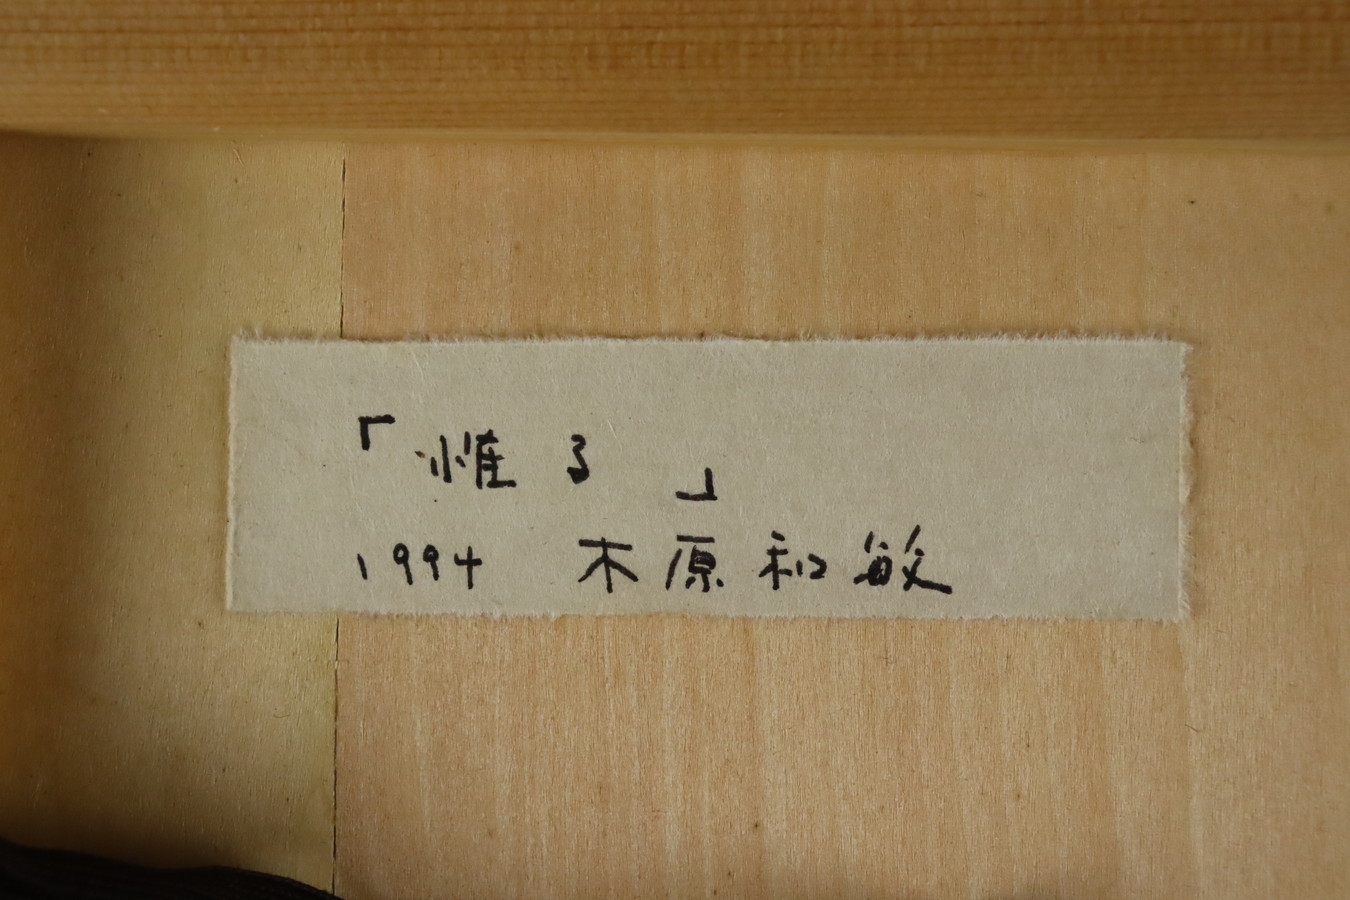 「惟る」
1994 木原和敏